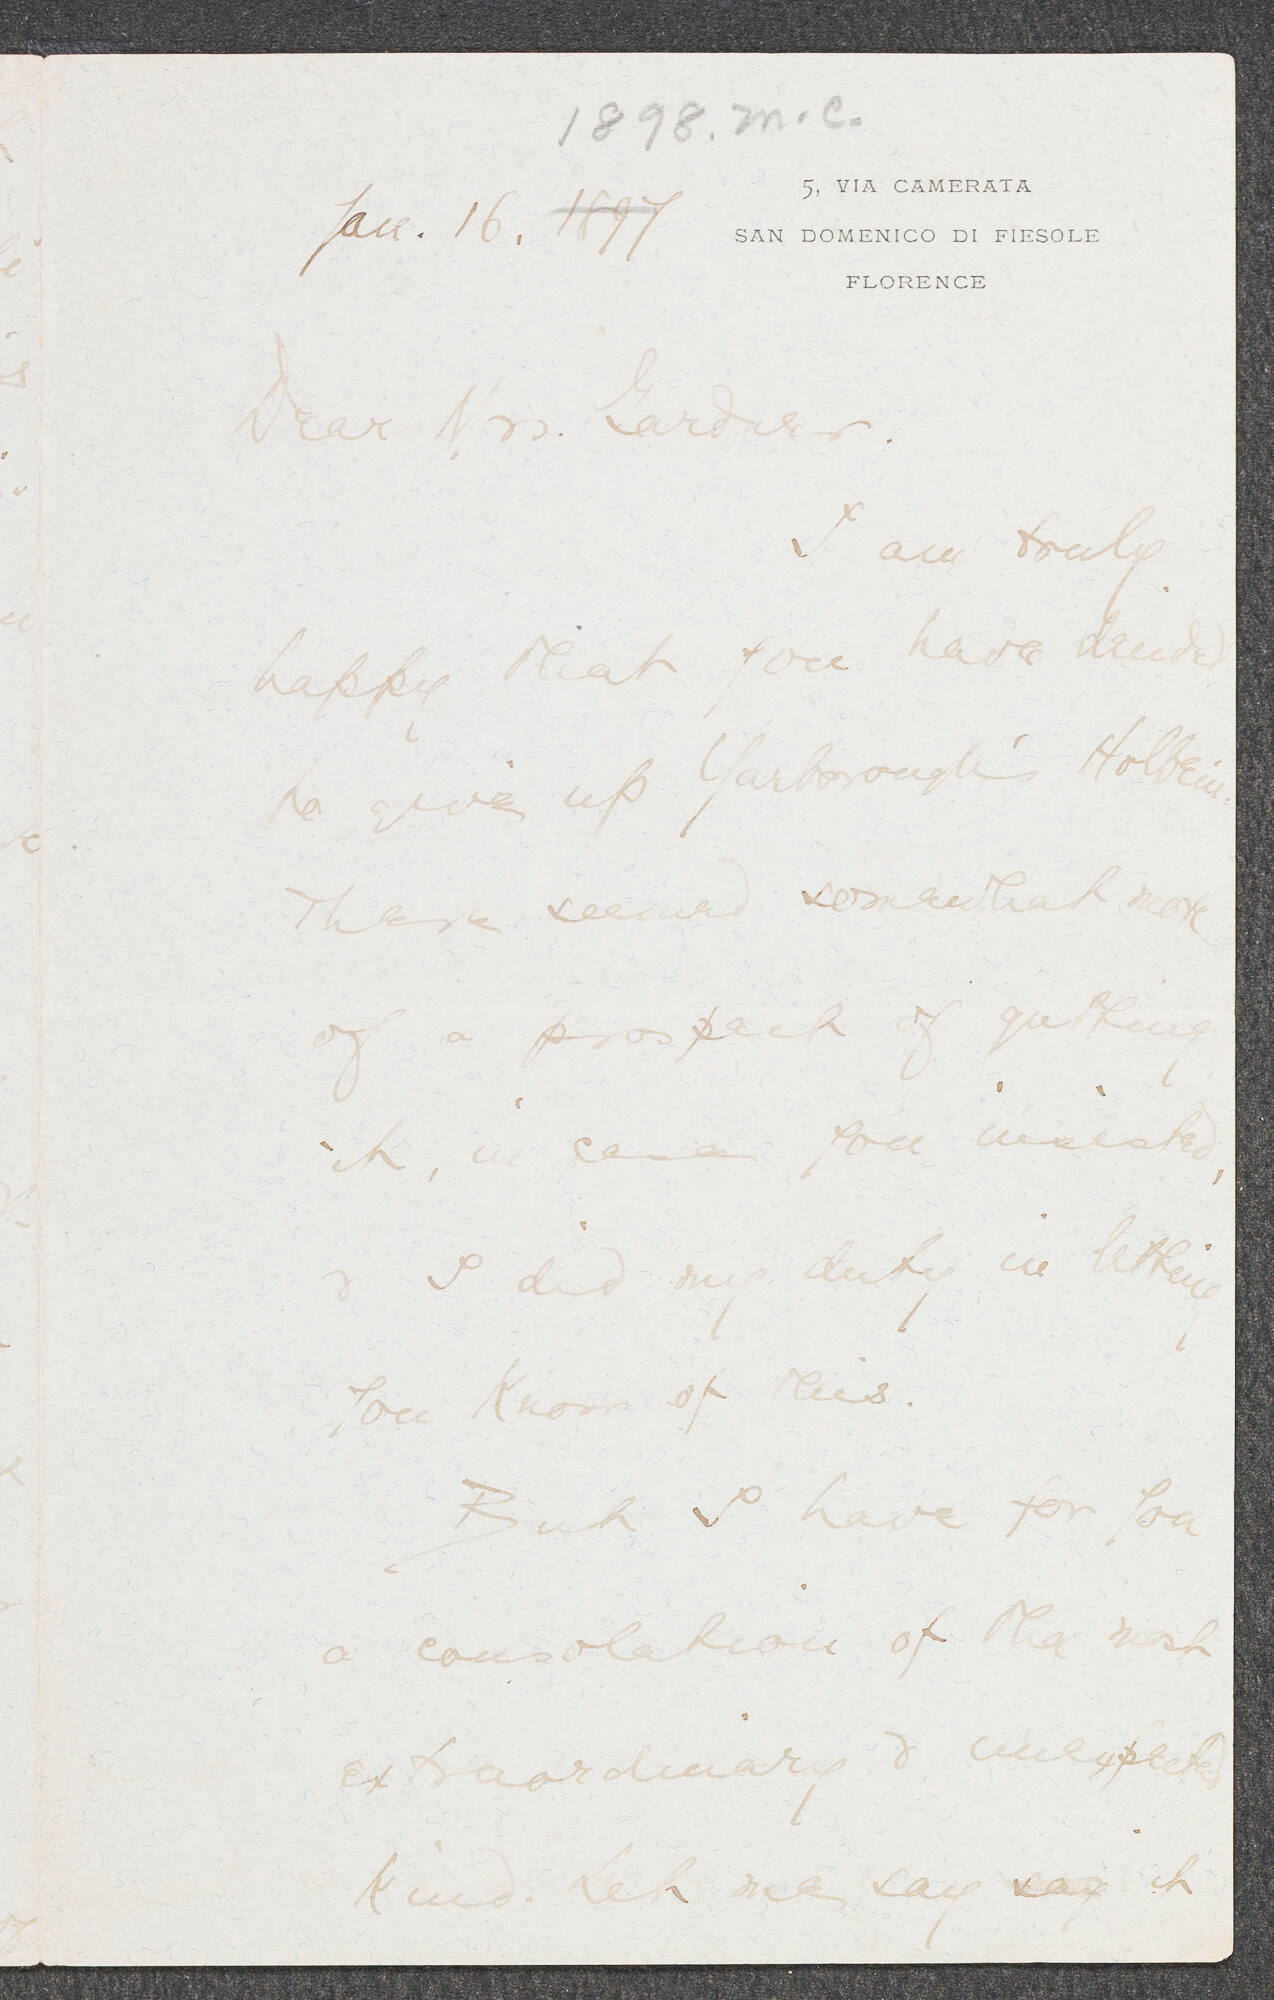 1898. M.C.
5, VIA CAMERATA
SAN DOMENICO DI FIESOLE
FLORENCE
Jan. 16. 1897
Dear Mrs. Gardner.
I am truly
happy that you have decided
to give up Yarborough's Holbein.
There seemed somewhat more
of a prospect of getting
it, in case you insisted,
& I did my duty in letting
you know of this.
But I have for you
a consolation of the most
extraordinary & unexpected
kind. Let me say say it